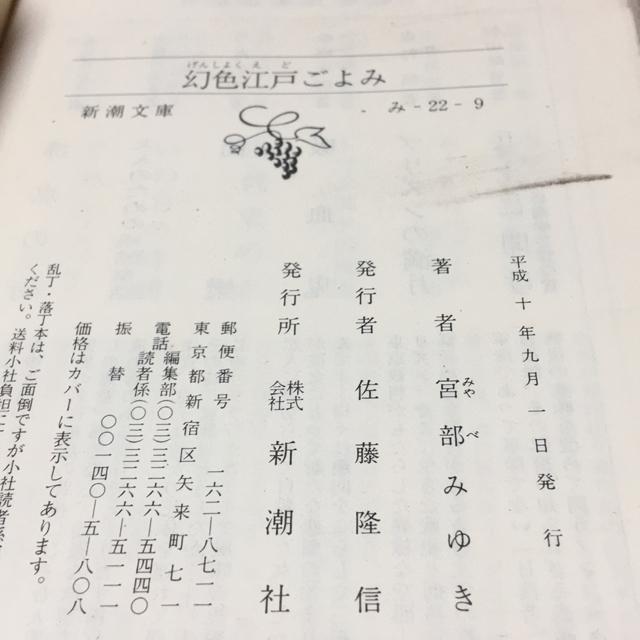 げんしょくえど
幻色江戸ごよみ
新潮文庫 み-22-9
平成十年九月一日発行
著者 宮部みゆき
みや べ
発行者 佐藤隆信
発行所 株式会社 新潮社
郵便番号 一六二―八七一一
東京都新宿区矢来町七一
電話 編集部(〇三)三二六六―五四四〇
読者係(〇三)三二六六―五一一一
振替 〇〇一四〇―五―八〇八
価格はカバーに表示してあります。
乱丁・落丁本は、ご面倒ですが小社読者係
ください。送料小社負担に